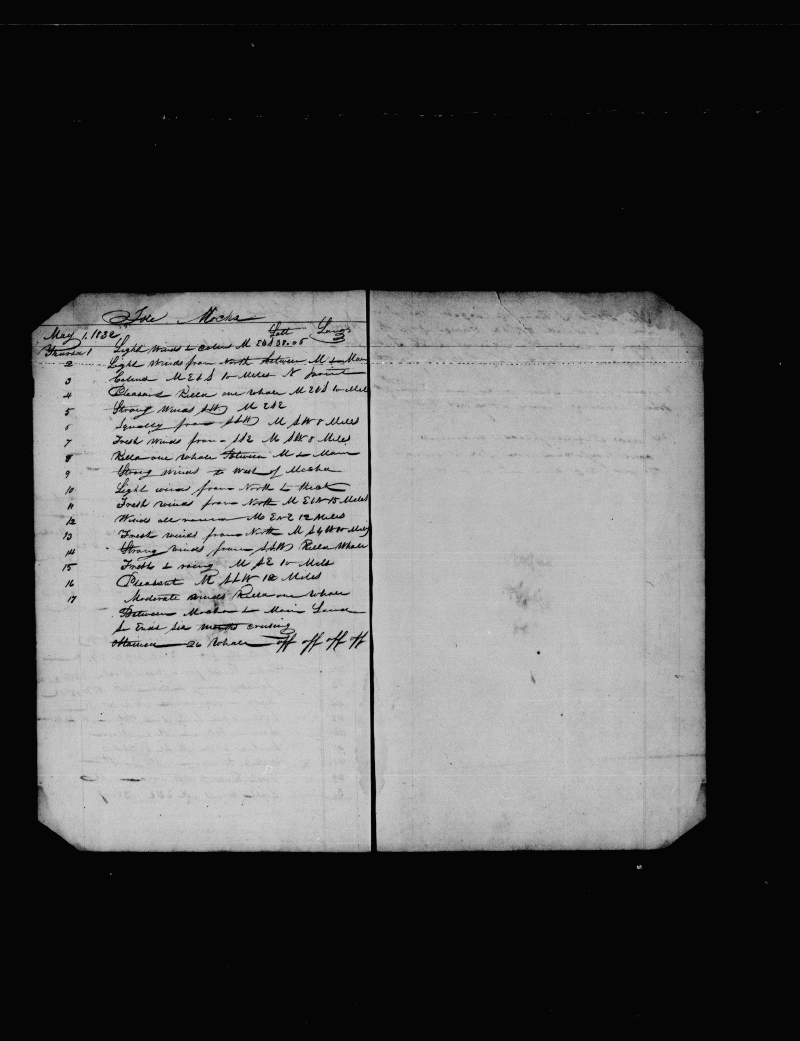 Isle Mocha
May 1, 1832 Latt Long
1 Light Winds & Calms M EbS 38.05
2 Light Winds from North between M & Main
3 Calms M EbS 10 Miles N
4 Pleasant Killd one whale M EbS 10 Mile
5 Strong Winds SW M ESE
6 Squally from SSW M SW 8 Miles
7 Fresh Winds from SSE M SW 8 Miles
8 Killd one Whale Between M & Main
9 Strong Winds to West of Mocha
10 Light winds from North &
11 Fresh winds from North M EbN 15 Miles
12 Winds all round Mo ENE 12 Miles
13 Fresh winds from North M Miles
14 Strong winds from SSW Killd Whale
15 Fresh & M SE 10 Mile
16 Pleasant M SSW 12 Miles
17 Moderate winds Killd one Whale
Between Mocha & Main Land
& Ends Six months cruising
26 Whale off off off off